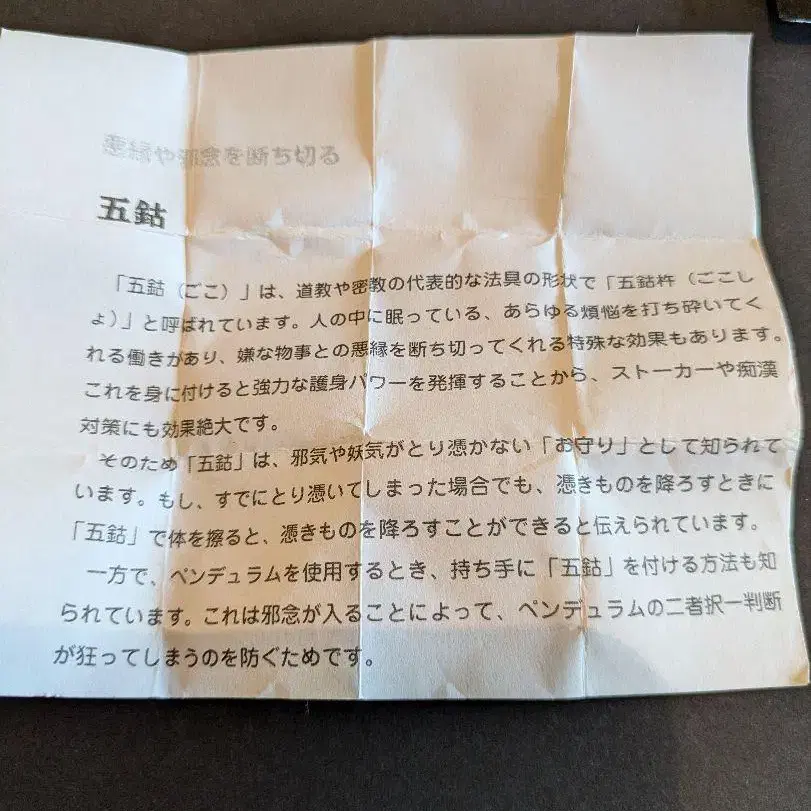 悪縁や邪念を断ち切る
五鈷
「五鈷（ごこ）」は、道教や密教の代表的な法具の形状で「五鈷杵（ごこし
ょ）」と呼ばれています。人の中に眠っている、あらゆる煩悩を打ち砕いてく
れる働きがあり、嫌な物事との悪縁を断ち切ってくれる特殊な効果もあります。
これを身に付けると強力な護身パワーを発揮することから、ストーカーや痴漢
対策にも効果絶大です。
そのため「五鈷」は、邪気や妖気がとり憑かない「お守り」として知られて
います。もし、すでにとり憑いてしまった場合でも、憑きものを降ろすときに
「五鈷」で体を擦ると、憑きものを降ろすことができると伝えられています。
一方で、ペンデュラムを使用するとき、持ち手に「五鈷」を付ける方法も知
られています。これは邪念が入ることによって、ペンデュラムの二者択一判断
が狂ってしまうのを防ぐためです。